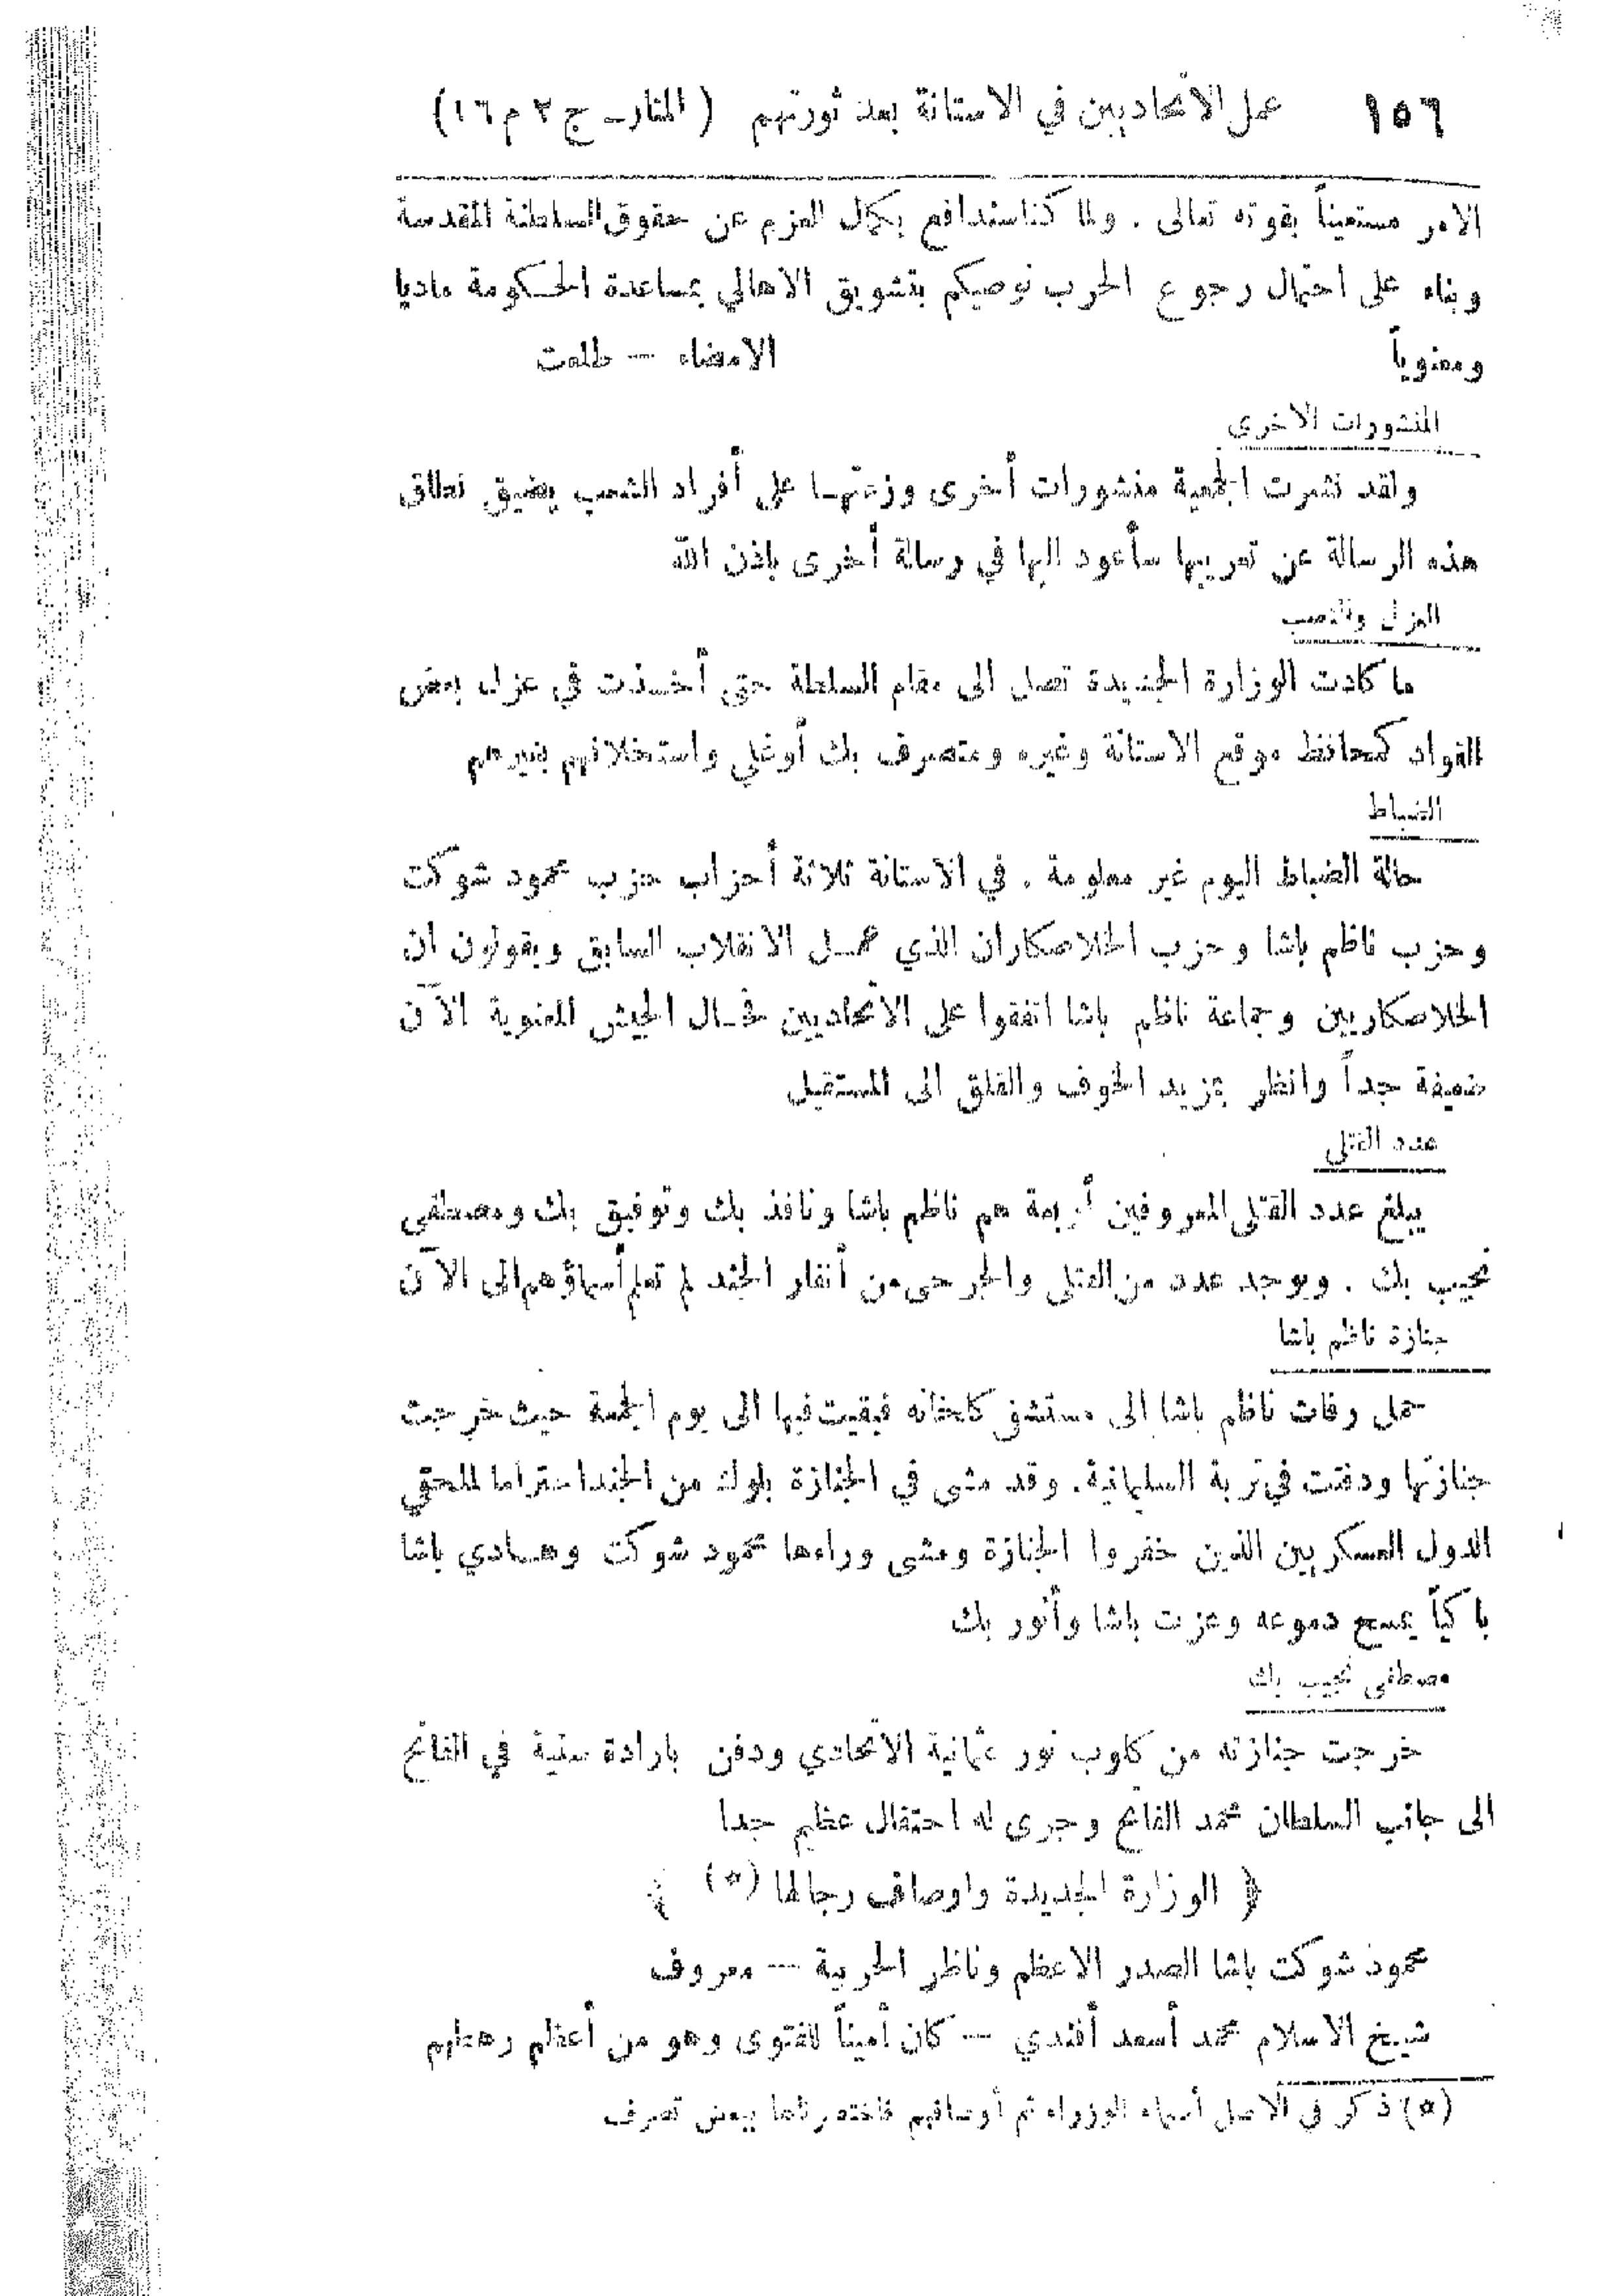 ١٥٦ عمل الاتحاديين في الاستانة بعد ثورتهم ( المنار ـ ج ٢ م ١٦ )
الامر مستعيناً بقوته تعالى . ولما كنا سندافع بكمال العزم عن حقوق السلطنة المقدسة
وبناء على احتمال رجوع الحرب نوصيكم بتشويق الاهالي بمساعدة الحكومة ماديا
ومعنوياً الامضاء — طلعت
المنشورات الاخرى
ولقد نشرت الجمعية منشورات أخرى وزعتها على أفراد الشعب يضيق نطاق
هذه الرسالة عن تعريبها سأعود اليها في رسالة أخرى باذن الله
العزل والنصب
ما كادت الوزارة الجديدة تصل الى مقام السلطة حتى أخذت في عزل بعض
القواد كمحافظ موقع الاستانة وغيره ومتصرف بك أوغلي واستخلافهم بغيرهم
الضباط
حالة الضباط اليوم غير معلومة . في الاستانة ثلاثة أحزاب حزب محمود شوكت
وحزب ناظم باشا وحزب الخلاصكاران الذي عمل الانقلاب السابق ويقولون ان
الخلاصكاريين وجماعة ناظم باشا اتفقوا على الاتحاديين فحال الجيش المعنوية الآن
ضعيفة جداً وانظر بمزيد الخوف والقلق الى المستقبل
عدد القتلى
يبلغ عدد القتلى المعروفين أربعة هم ناظم باشا ونافذ بك وتوفيق بك ومصطفى
نجيب بك . ويوجد عدد من القتلى والجرحى من أنفار الجند لم تعلم أسماؤهم الى الآن
جنازة ناظم باشا
حمل رفات ناظم باشا الى مستشفى كلخانه فبقيت فيها الى يوم الجمعة حيث خرجت
جنازتها ودفنت في تربة السليمانية . وقد مشى في الجنازة بلوك من الجند احتراما لملحقي
الدول العسكريين الذين خفروا الجنازة ومشى وراءها محمود شوكت وهادي باشا
باكياً يمسح دموعه وعزت باشا وأنور بك
مصطفى نجيب بك
خرجت جنازته من كلوب نور عثمانية الاتحادي ودفن بارادة سنية في الفاتح
الى جانب السلطان محمد الفاتح وجرى له احتفال عظيم جدا
﴿ الوزارة الجديدة واوصاف رجالها (*) ﴾
محمود شوكت باشا الصدر الاعظم وناظر الحربية — معروف
شيخ الاسلام محمد أسعد أفندي — كان أميناً للفتوى وهو من أعظم رهطهم
(*) ذكر في الاصل أسماء الوزراء ثم أوصافهم فاختصرناها ببعض تصرف